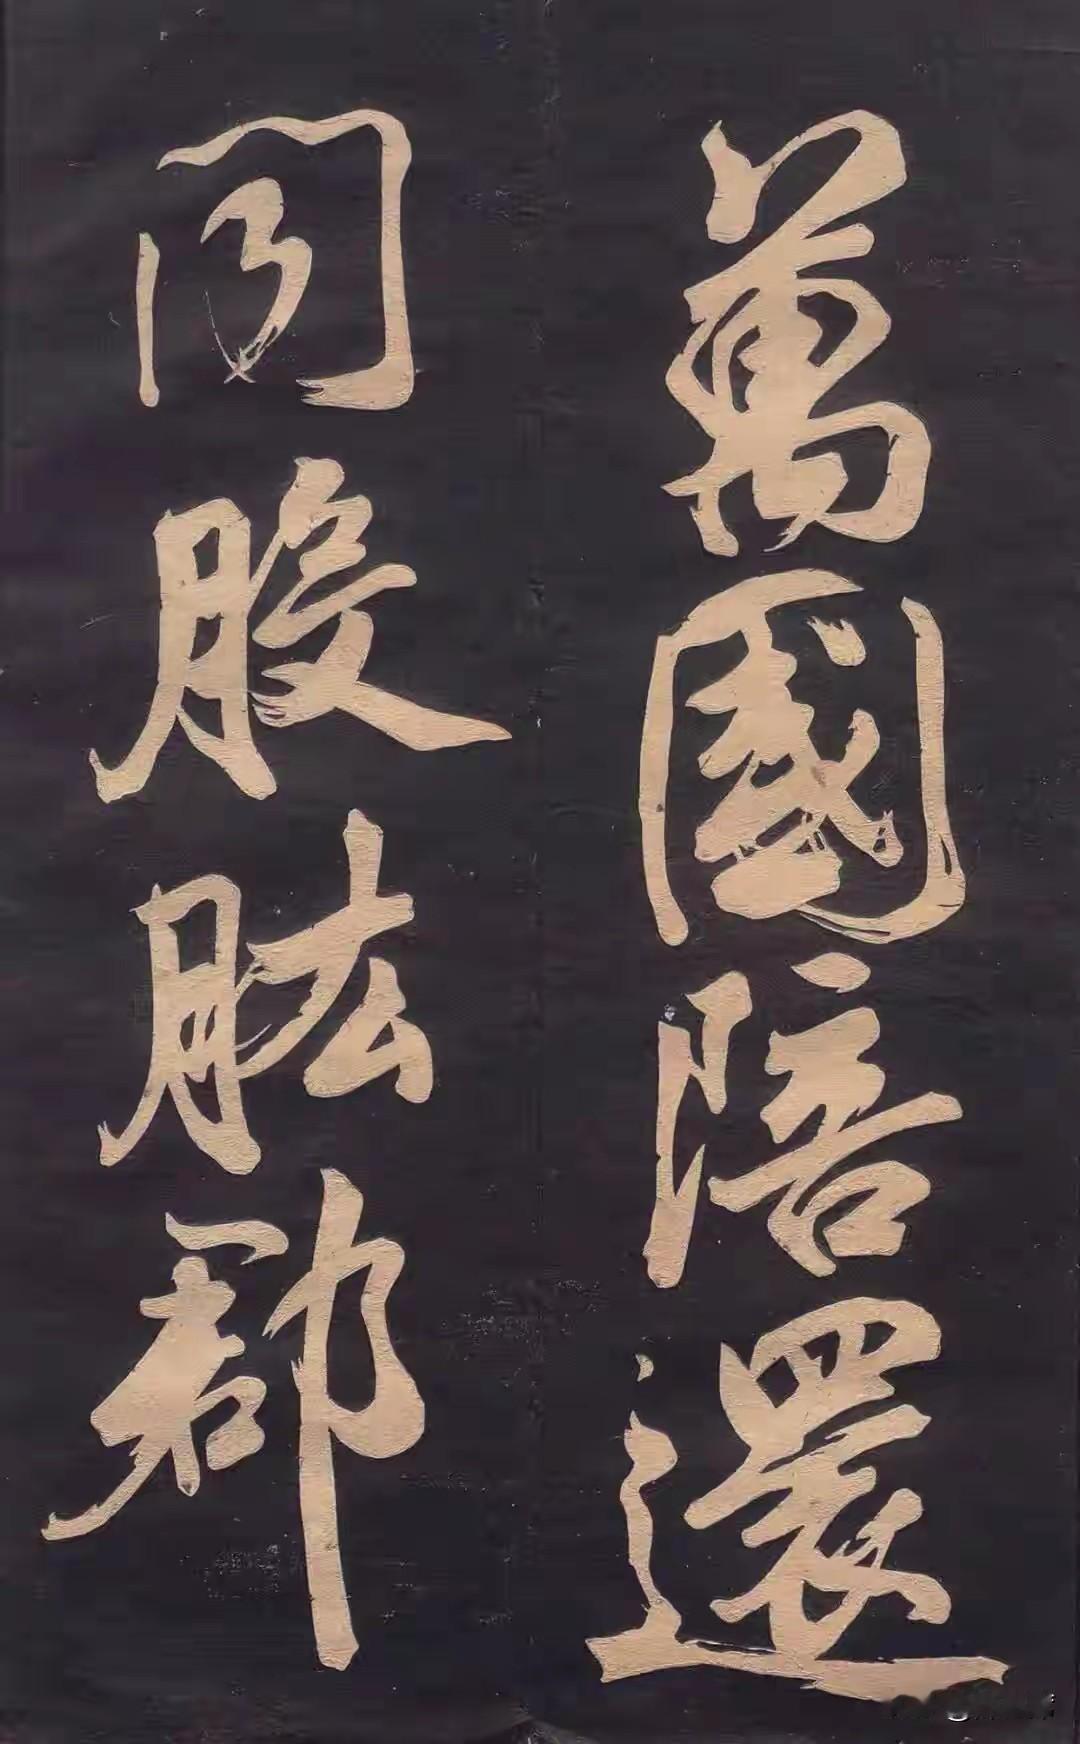 萬國陪還
聞股肱郡